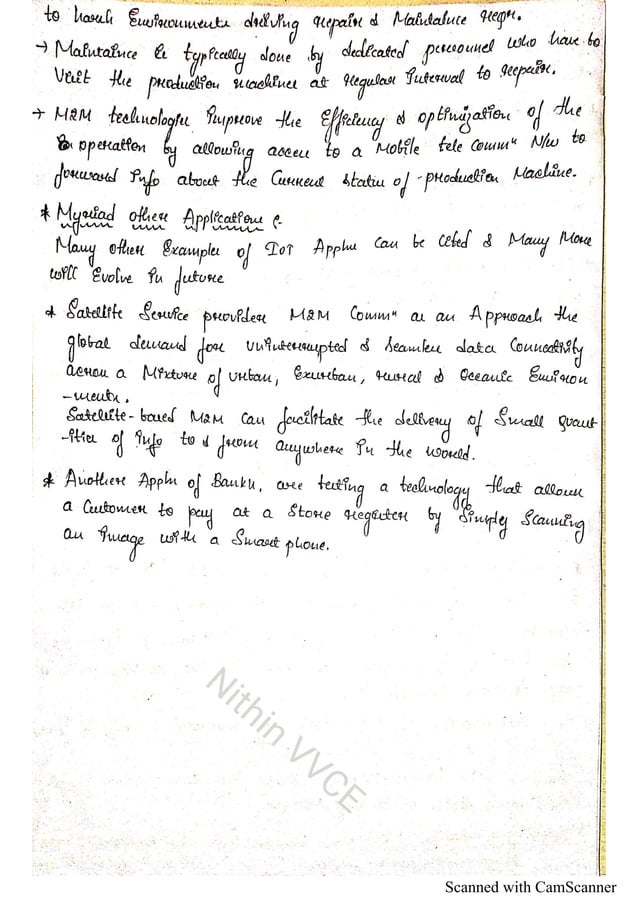 to harsh Environments driving repairs & Maintaince reqn.
→ Maintaince is typically done by dedicated personnel who have to
Visit the production machines at regular Interval to repair.
→ M2M technologies Improve the Efficiency & optimization of the
operation by allowing access to a Mobile tele Commⁿ N/w to
forward Info about the Current status of production Machine.
* Myriad others Applications :-
Many others Examples of IoT Applns Can be Cited & Many More
will Evolve in future
* Satellite Service providers M2M Commⁿ as an Approach the
global demand for uninterrupted & seamless data Connectivity
across a Mixture of urban, Exurban, rural & Oceanic Environ
-ments.
Satellite-based M2M Can facilitate the delivery of Small quant
-ities of Info to & from anywhere in the world.
* Another Appln of Banks, are testing a technology that allows
a Customer to pay at a Store register by Simply Scanning
an Image with a Smart phone.
Nithin VVCE
Scanned with CamScanner